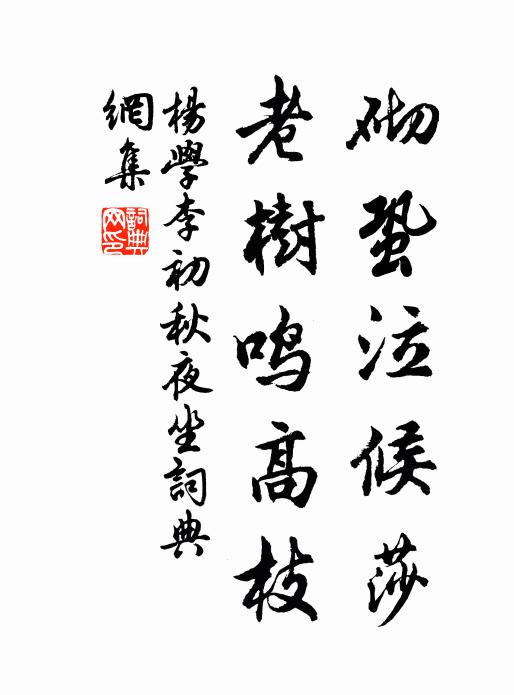 砌蛩泣候莎
老樹鳴高枝
楊學李初秋夜坐詞典
網集
詞典网印